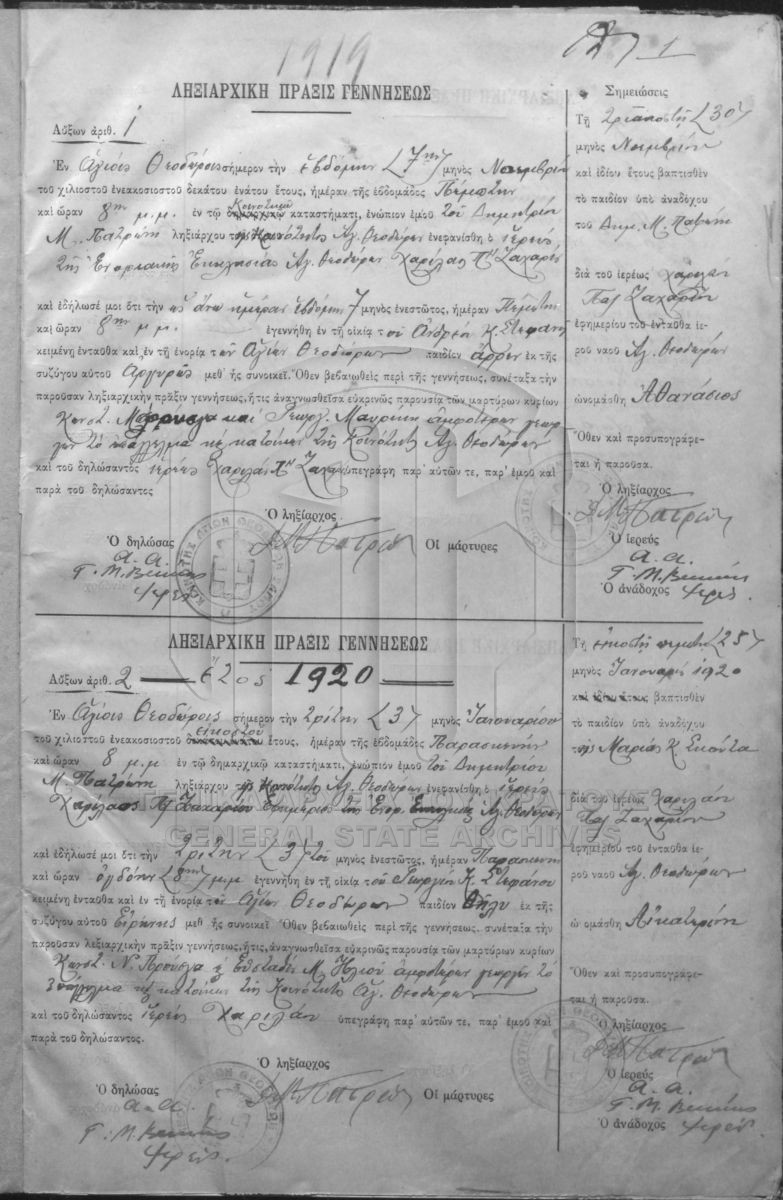 1919
27 1
ΛΗΞΙΑΡΧΙΚΗ ΠΡΑΞΙΣ ΓΕΝΝΗΣΕΩΣ
Αὔξων ἀριθ. 1
Ἐν Ἁγίοις Θεοδώροις σήμερον τὴν ἑβδόμην (7ην) μηνὸς Νοεμβρίου
τοῦ χιλιοστοῦ ἐνεακοσιοστοῦ δεκάτου ἐνάτου ἔτους, ἡμέραν τῆς ἑβδομάδος Πέμπτην
καὶ ὥραν 8ην μ.μ. ἐν τῷ Κοινοτικῷ δημαρχικῷ καταστήματι, ἐνώπιον ἐμοῦ τοῦ Δημητρίου
Μ. Πατρώνη ληξιάρχου τῆς Κοινότητος Ἁγ. Θεοδώρων ἐνεφανίσθη ὁ ἱερεὺς
τῆς Ἐνοριακῆς Ἐκκλησίας Ἁγ. Θεοδώρων Χαρίλαος
καὶ ἐδήλωσέ μοι ὅτι τὴν ὡς ἄνω ἡμέραν ἑβδόμην 7 μηνὸς ἐνεστῶτος, ἡμέραν Πέμπτην
καὶ ὥραν 8ην μ.μ. ἐγεννήθη ἐν τῇ οἰκίᾳ τοῦ Ἀνδρέα Κ. Στεφάνου
κειμένῃ ἐνταῦθα καὶ ἐν τῇ ἐνορίᾳ τῶν Ἁγίων Θεοδώρων παιδίον ἄρρεν ἐκ τῆς
συζύγου αὐτοῦ Ἀργυρῶς μεθ᾽ ἧς συνοικεῖ. Ὅθεν βεβαιωθεὶς περὶ τῆς γεννήσεως, συνέταξα τὴν
παροῦσαν ληξιαρχικὴν πρᾶξιν γεννήσεως, ἥτις ἀναγνωσθεῖσα εὐκρινῶς παρουσίᾳ τῶν μαρτύρων κυρίων
Κωνστ. καὶ Γεωργ. ἀμφοτέρων γεωρ-
γῶν τὸ ἐπάγγελμα κατοίκων τῆς Κοινότητος Ἁγ. Θεοδώρων
καὶ τοῦ δηλώσαντος ἱερέως Χαριλάου ὑπεγράφη παρ᾽ αὐτῶν τε, παρ᾽ ἐμοῦ καὶ
παρὰ τοῦ δηλώσαντος
Ὁ ληξίαρχος
Ὁ δηλώσας
Οἱ μάρτυρες
Α. Α.
ΔΜΠατρώνης
Γ. Μ. Βεκιάρης
Σημειώσεις
Τῇ τριακοστῇ (30)
μηνὸς Νοεμβρίου
καὶ ἰδίου ἔτους βαπτισθὲν
τὸ παιδίον ὑπὸ ἀναδόχου
τοῦ Δημ. Μ.
διὰ τοῦ ἱερέως Χαριλάου
Παπ Ζαχαρίου
ἐφημερίου τοῦ ἐνταῦθα ἱε-
ροῦ ναοῦ Ἁγ. Θεοδώρων
ὠνομάσθη Ἀθανάσιος
Ὅθεν καὶ προσυπογράφε-
ται ἡ παροῦσα.
Ὁ ληξίαρχος
ΔΜΠατρώνης
Ὁ ἱερεὺς
Α. Α.
Ὁ ἀνάδοχος
ΛΗΞΙΑΡΧΙΚΗ ΠΡΑΞΙΣ ΓΕΝΝΗΣΕΩΣ
Αὔξων ἀριθ. 2 Ἔτος 1920
Ἐν Ἁγίοις Θεοδώροις σήμερον τὴν τρίτην (3) μηνὸς Ἰανουαρίου
τοῦ χιλιοστοῦ ἐνεακοσιοστοῦ εἰκοστοῦ ἔτους, ἡμέραν τῆς ἑβδομάδος Παρασκευὴν
καὶ ὥραν 8 μ.μ ἐν τῷ δημαρχικῷ καταστήματι, ἐνώπιον ἐμοῦ τοῦ Δημητρίου
Μ. Πατρώνη ληξιάρχου τῆς Κοινότητος Ἁγ. Θεοδώρων ἐνεφανίσθη ὁ ἱερεὺς
Χαρίλαος Παπ Ζαχαρίου Ἐφημέριος τῆς Ἐνορ. Ἐκκλησίας Ἁγ. Θεοδώρων
καὶ ἐδήλωσέ μοι ὅτι τὴν τρίτην (3) τοῦ μηνὸς ἐνεστῶτος, ἡμέραν Παρασκευὴν
καὶ ὥραν ὀγδόην (8ην) μ.μ ἐγεννήθη ἐν τῇ οἰκίᾳ τοῦ Γεωργίου Κ. Στεφάνου
κειμένῃ ἐνταῦθα καὶ ἐν τῇ ἐνορίᾳ τῶν Ἁγίων Θεοδώρων παιδίον θῆλυ ἐκ τῆς
συζύγου αὐτοῦ Εἰρήνης μεθ ἧς συνοικεῖ Ὅθεν βεβαιωθεὶς περὶ τῆς γεννήσεως. συνέταξα τὴν
παροῦσαν λεξιαρχικὴν πρᾶξιν γεννήσεως, ἥτις, ἀναγνωσθεῖσα εὐκρινῶς παρουσίᾳ τῶν μαρτύρων κυρίων
Κωνστ. Ν. Μ. Ἠλιοῦ ἀμφοτέρων γεωργῶν τὸ
ἐπάγγελμα κατοίκων τῆς Κοινότητος Ἁγ. Θεοδώρων
καὶ τοῦ δηλώσαντος ἱερέως Χαριλάου ὑπεγράφη παρ᾽ αὐτῶν τε, παρ᾽ ἐμοῦ καὶ
παρὰ τοῦ δηλώσαντος.
Ὁ ληξίαρχος
Ὁ δηλώσας
Οἱ μάρτυρες
Α. Α.
ΔΜΠατρώνης
Τῇ εἰκοστῇ πέμπτῃ (25)
μηνὸς Ἰανουαρίου 1920
καὶ ἰδίου ἔτους βαπτισθὲν
τὸ παιδίον ὑπὸ ἀναδόχου
τῆς Μαρίας Κ
διὰ τοῦ ἱερέως Χαριλάου
Παπ Ζαχαρίου
ἐφημερίου τοῦ ἐνταῦθα ἱε
ροῦ ναοῦ Ἁγ. Θεοδώρων
ὠνομάσθη Αἰκατερίνη
Ὅθεν καὶ προσυπογράφε-
ται ἡ παροῦσα.
Ὁ ληξίαρχος
ΔΜΠατρώνης
Ὁ ἱερεὺς
Α. Α.
Ὁ ἀνάδοχος
GENERAL STATE ARCHIVES